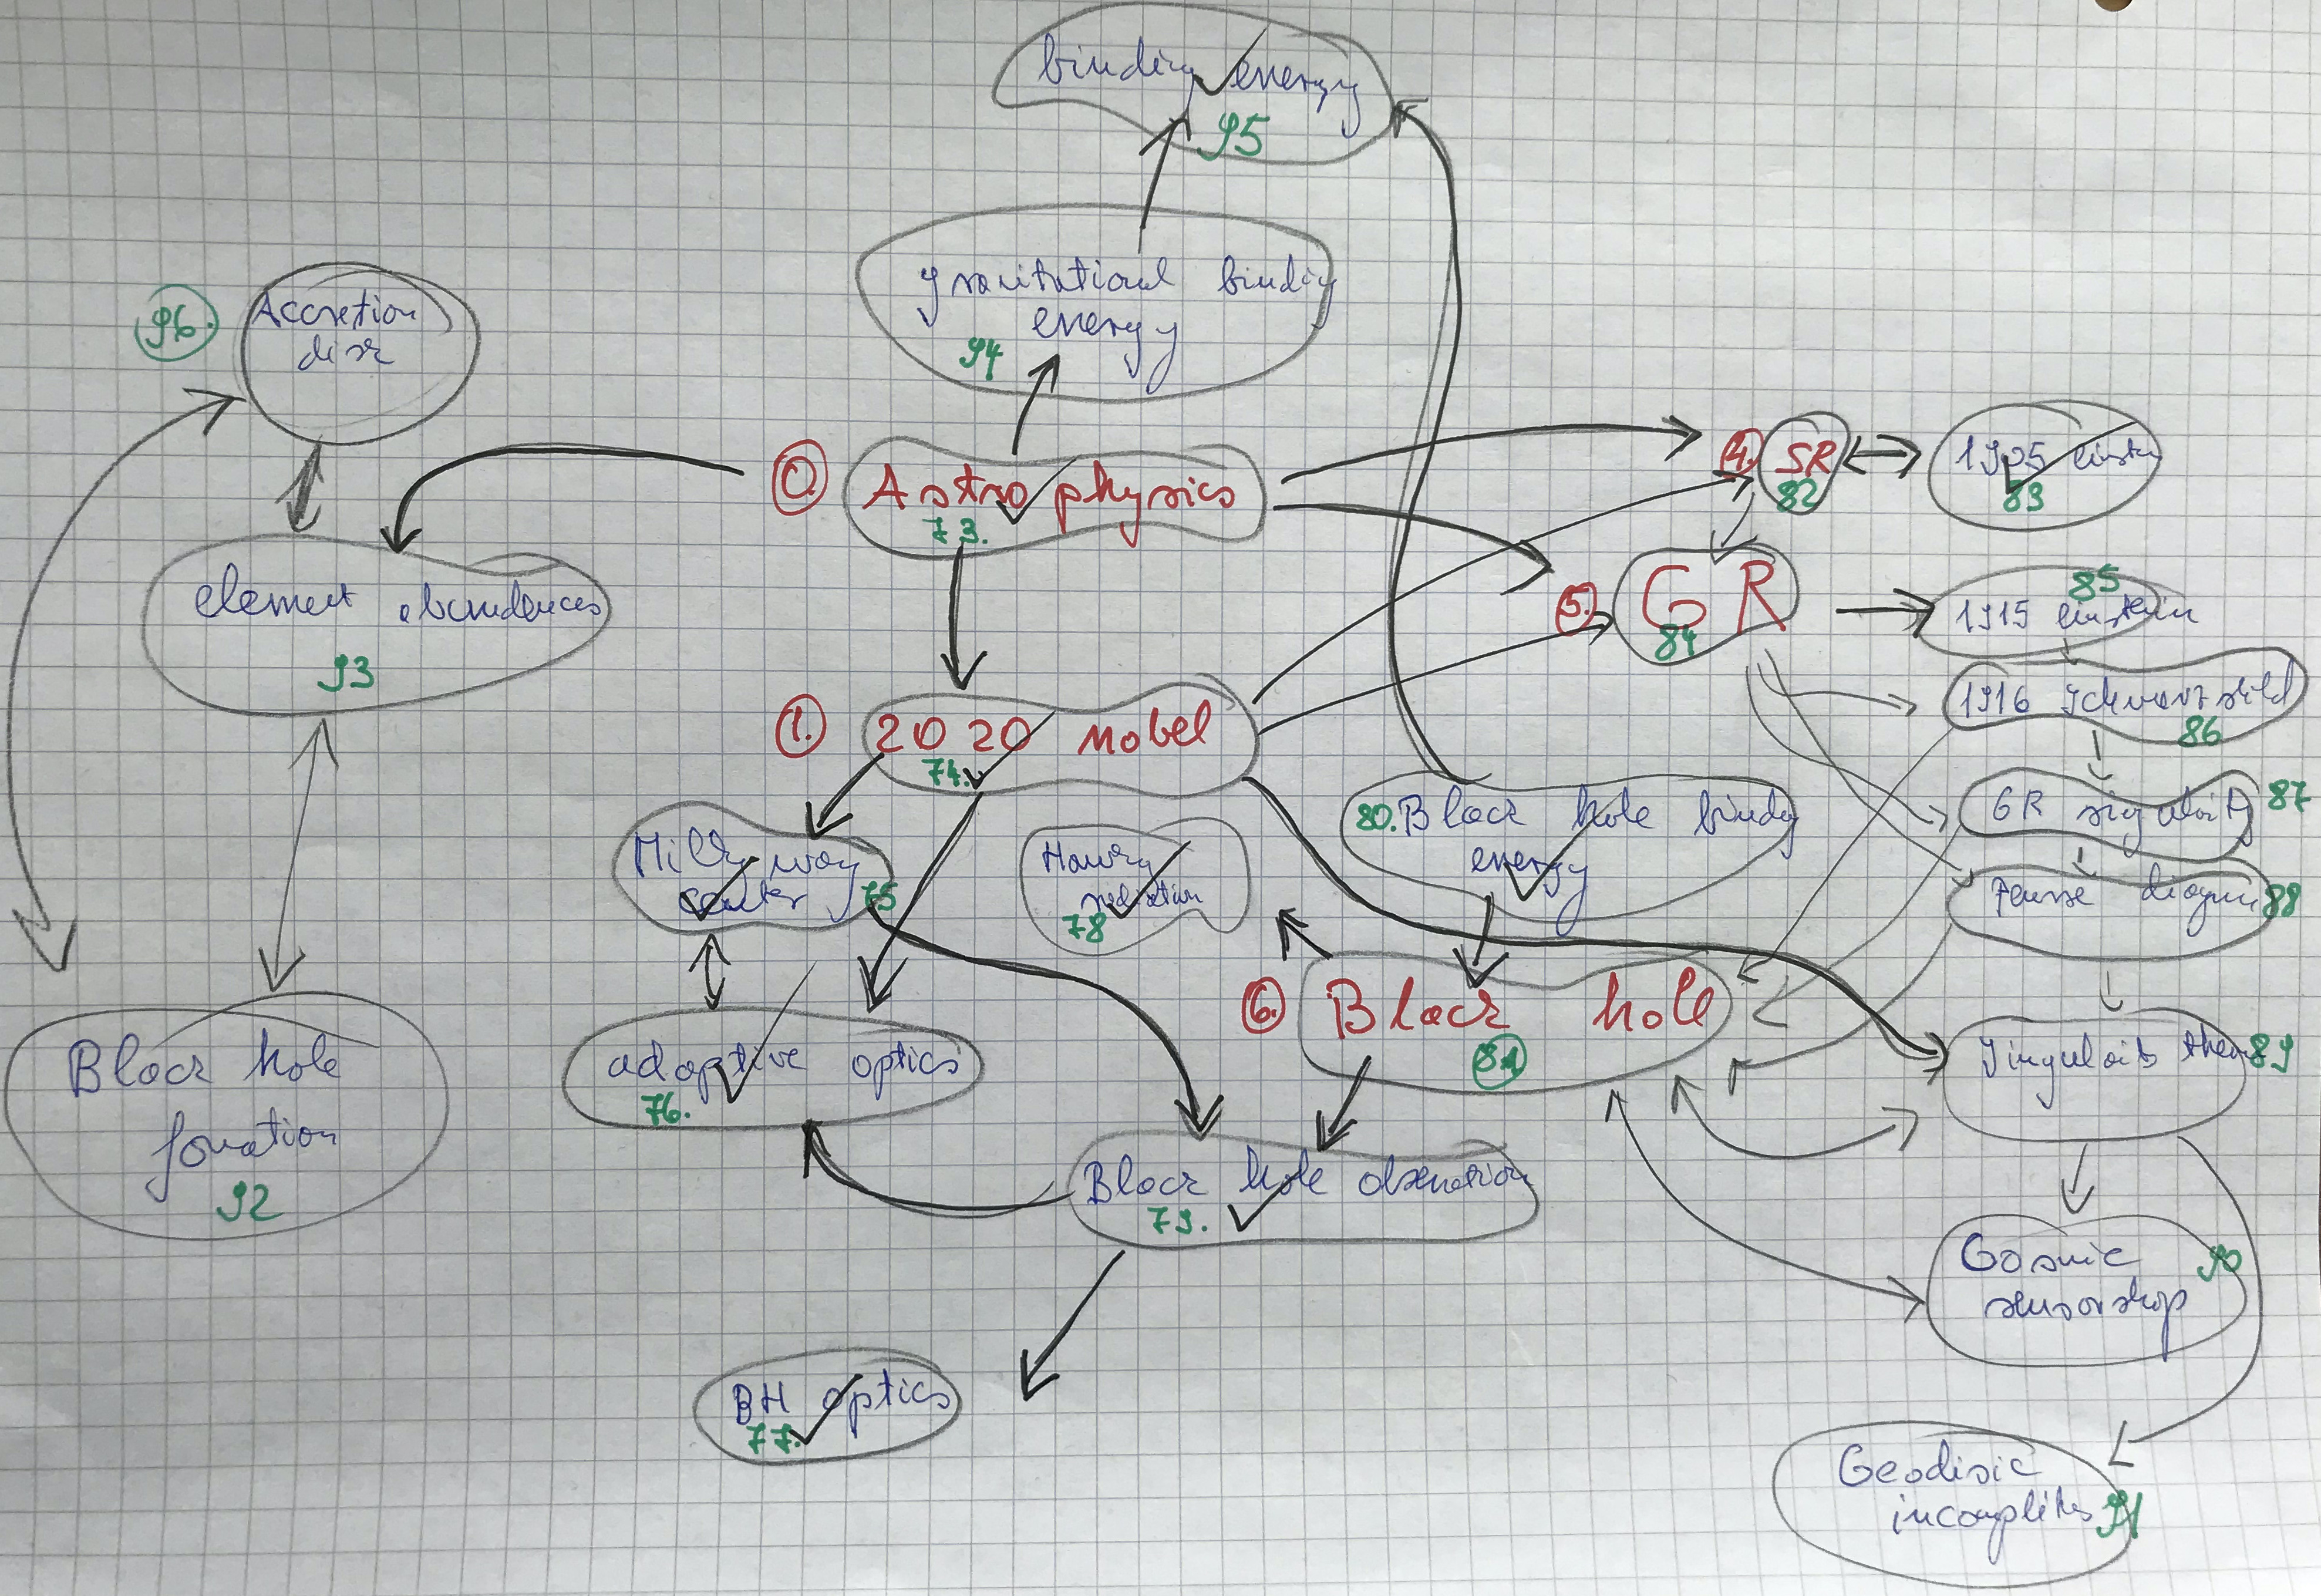 binding energy
95
gravitational binding
energy
94
96.
Accretion
disk
0.
Astrophysics
73.
4.
SR
82
1905 Einstein
83
element abundances
93
5.
GR
84
85
1915 Einstein
1.
2020 Nobel
74.
1916 Schwarzschild
86
Milky way
center
75
Hawking
radiation
78
80. Black hole binding
energy
GR
87
Penrose diagram
88
6.
Black hole
81
adaptive optics
76.
Black hole
formation
92
Singularity theorem
89
Black hole observation
79.
Cosmic
sensorship
90
BH optics
77.
Geodisic
91